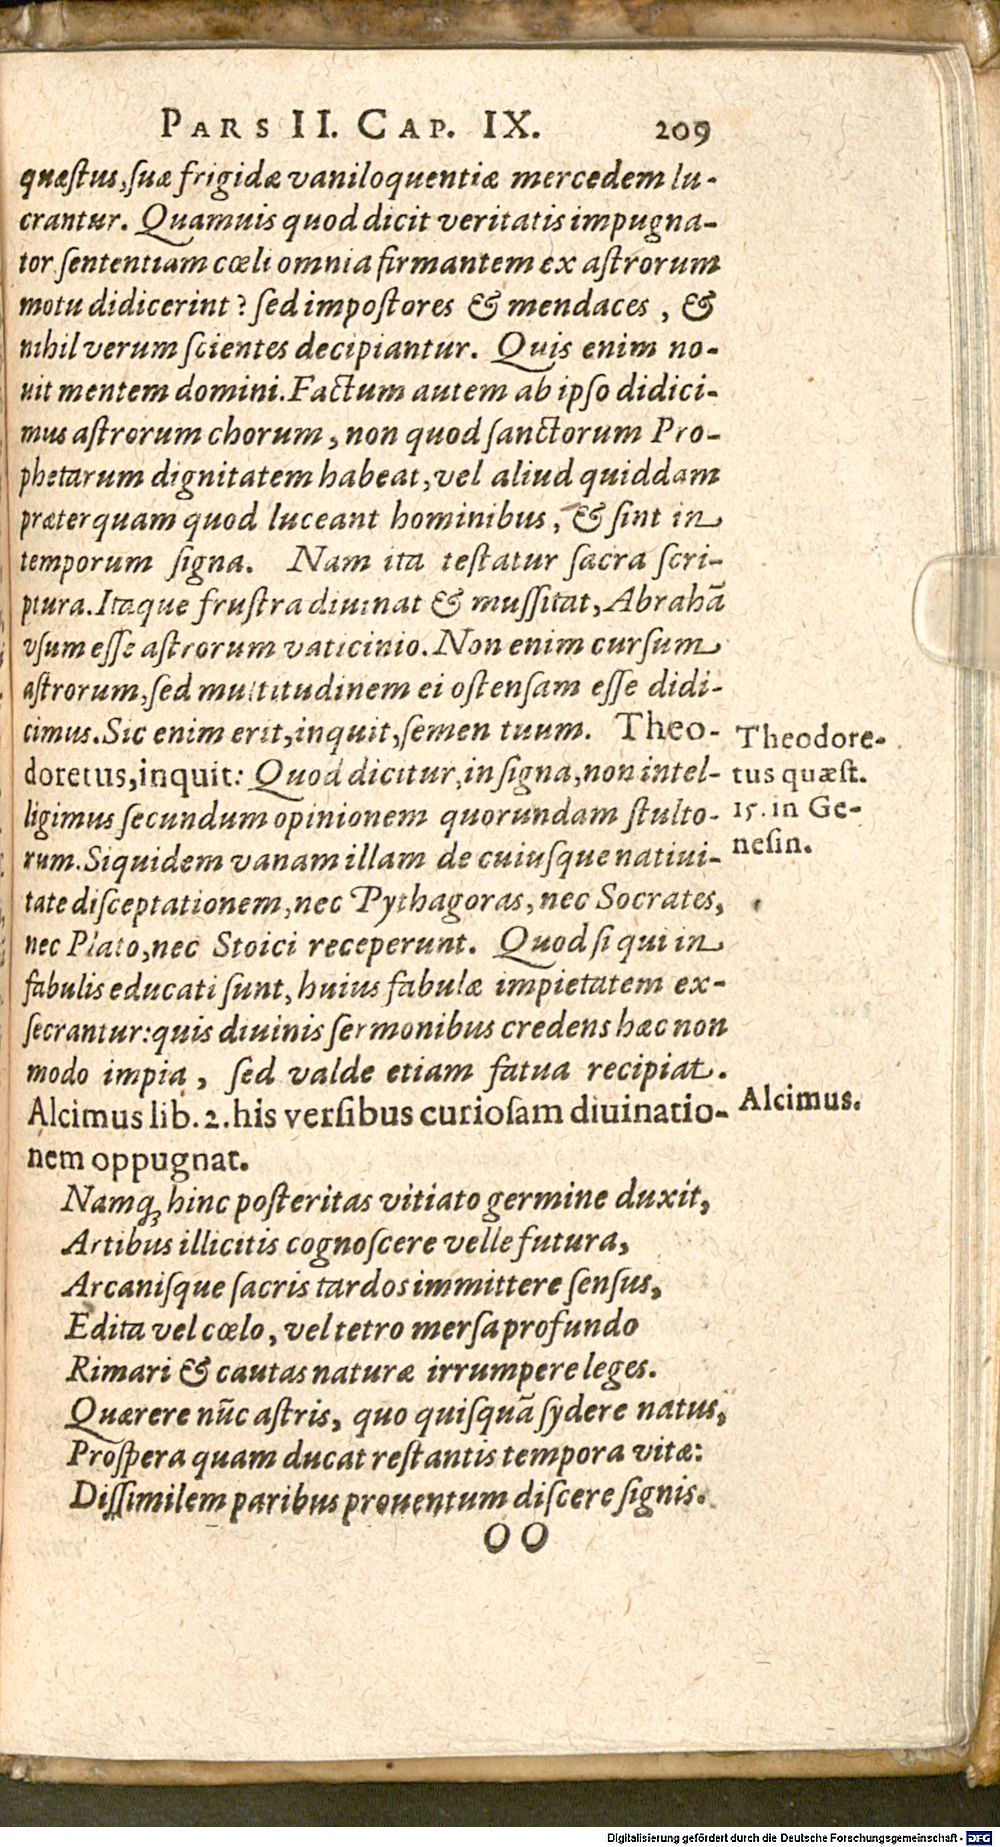 PARS II. CAP. IX. 209
quæſtus, ſuæ frigidæ vaniloquentiæ mercedem lu-
crantur. Quamuis quod dicit veritatis impugna-
tor ſententiam cœli omnia firmantem ex aſtrorum
motu didicerint? ſed impoſtores & mendaces, &
nihil verum ſcientes decipiantur. Quis enim no-
uit mentem domini. Factum autem ab ipſo didici-
mus aſtrorum chorum, non quod ſanctorum Pro-
phetarum dignitatem habeat, vel aliud quiddam
præterquam quod luceant hominibus, & ſint in
temporum ſigna. Nam ita teſtatur ſacra ſcri-
ptura. Itaque fruſtra diuinat & muſſitat, Abrahã
vſum eſſe aſtrorum vaticinio. Non enim curſum
aſtrorum, ſed multitudinem ei oſtenſam eſſe didi-
cimus. Sic enim erit, inquit, ſemen tuum. Theo-
doretus, inquit: Quod dicitur, in ſigna, non intel-
ligimus ſecundum opinionem quorundam ſtulto-
rum. Siquidem vanam illam de cuiuſque natiui-
tate diſceptationem, nec Pythagoras, nec Socrates,
nec Plato, nec Stoici receperunt. Quod ſi qui in
fabulis educati ſunt, huius fabulæ impietatem ex-
ſecrantur: quis diuinis ſermonibus credens hæc non
modo impia, ſed valde etiam fatua recipiat.
Alcimus lib. 2. his verſibus curioſam diuinatio-
nem oppugnat.
Namq́; hinc poſteritas vitiato germine duxit,
Artibus illicitis cognoſcere velle futura,
Arcaniſque ſacris tardos immittere ſenſus,
Edita vel cœlo, vel tetro merſa profundo
Rimari & cautas naturæ irrumpere leges.
Quærere nūc aſtris, quo quiſquã ſydere natus,
Proſpera quam ducat reſtantis tempora vitæ:
Diſſimilem paribus prouentum diſcere ſignis.
OO
Theodore-
tus quæſt.
15. in Ge-
neſin.
Alcimus.
Digitalisierung gefördert durch die Deutsche Forschungsgemeinschaft - DFG